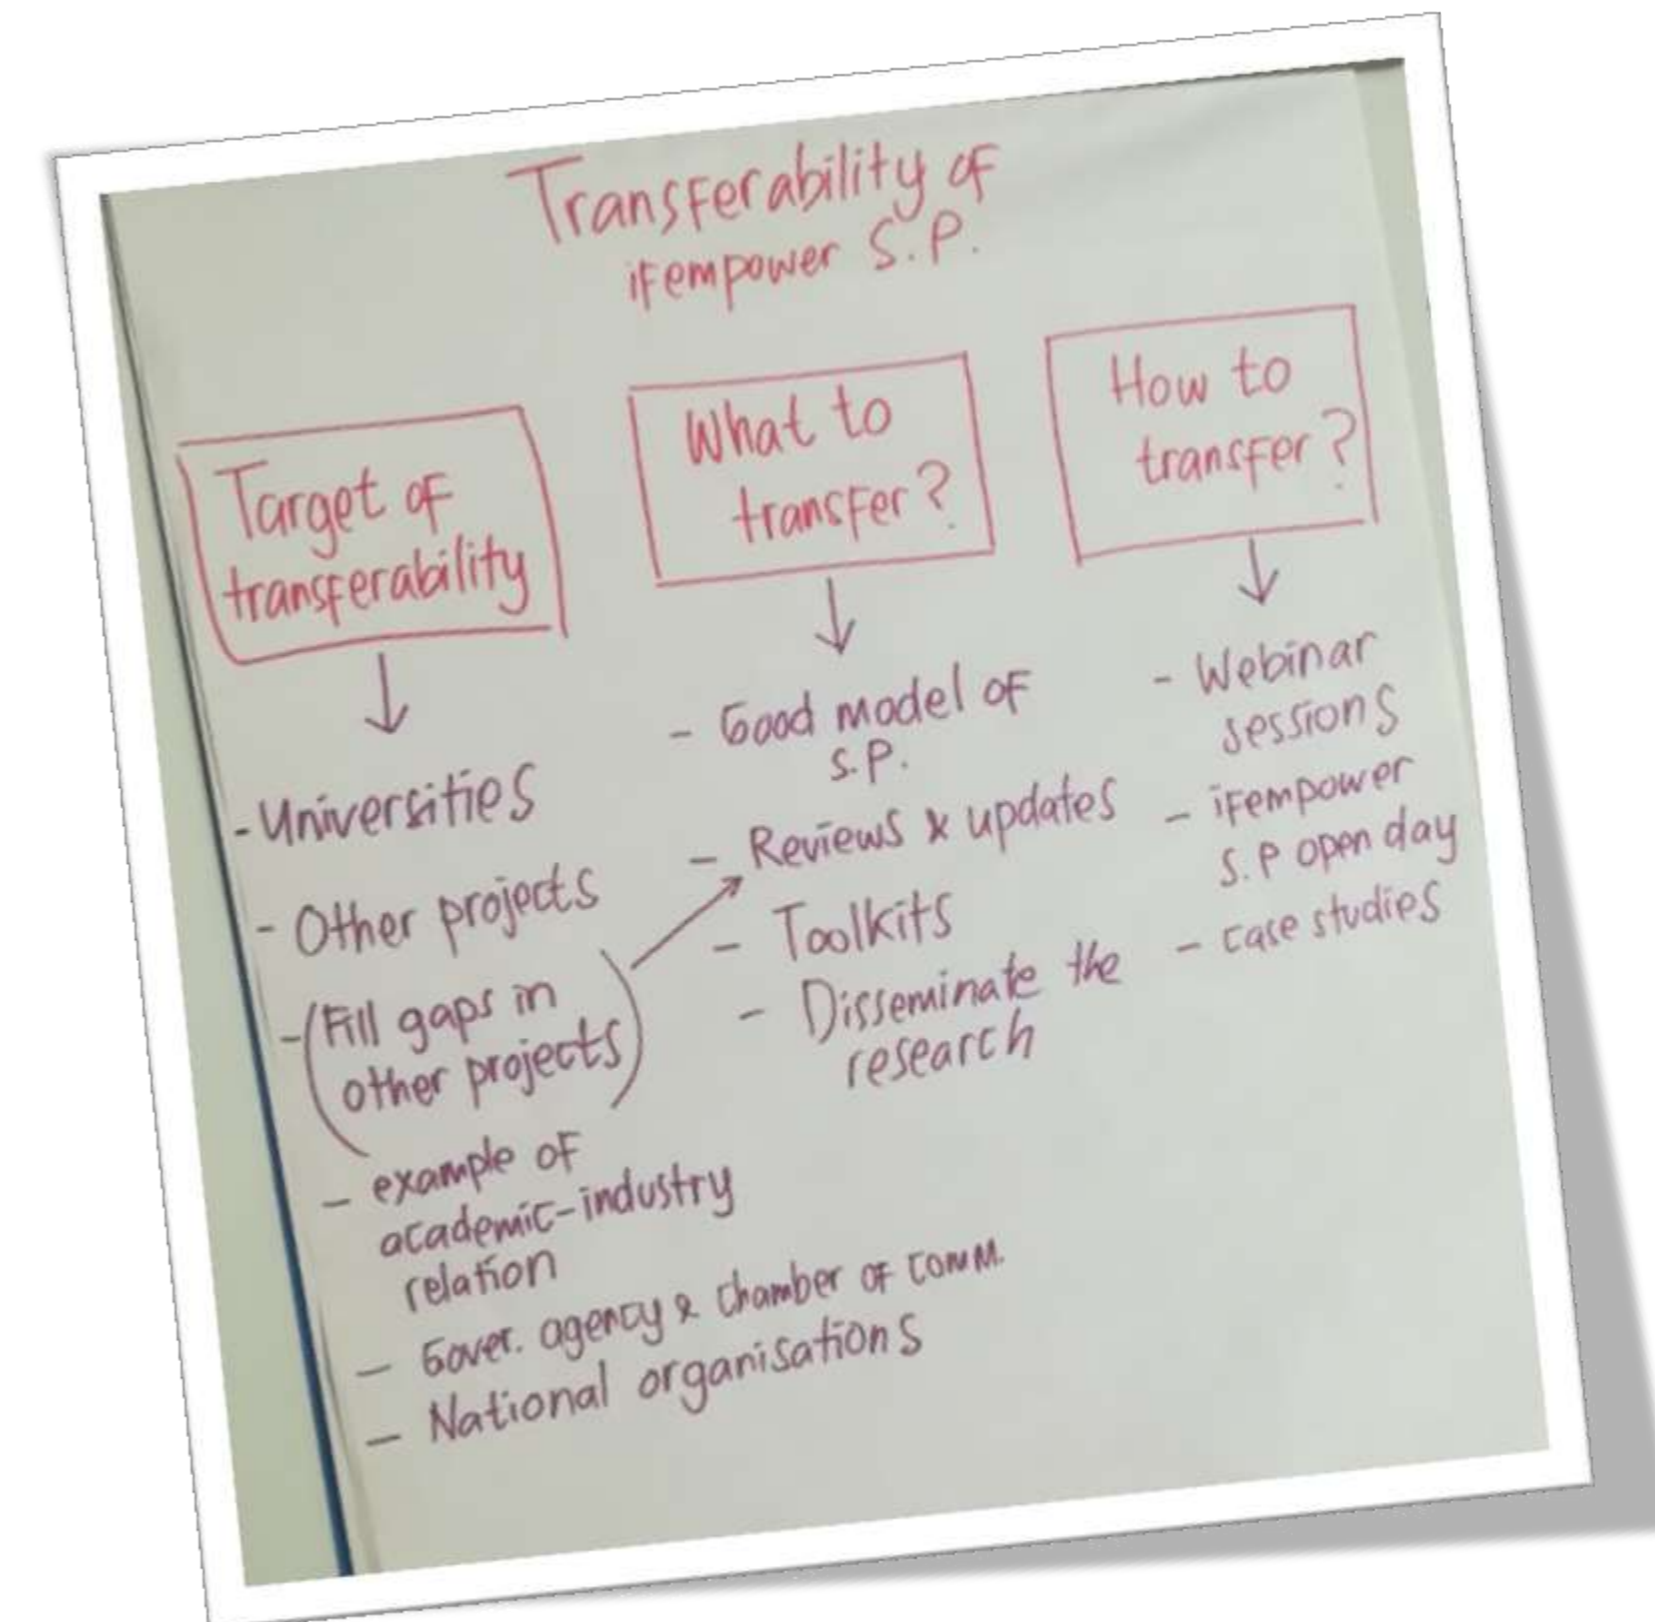 Transferability of
ifempower S.P.
Target of
transferability
- Universities
- Other projects
- (Fill gaps in
other projects)
- example of
academic-industry
relation
- Gover. agency & Chamber of comm.
- National organisations
What to
transfer?
- Good model of
S.P.
- Reviews & updates
- Toolkits
- Disseminate the
research
How to
transfer?
- Webinar
sessions
- ifempower
S.P open day
- case studies